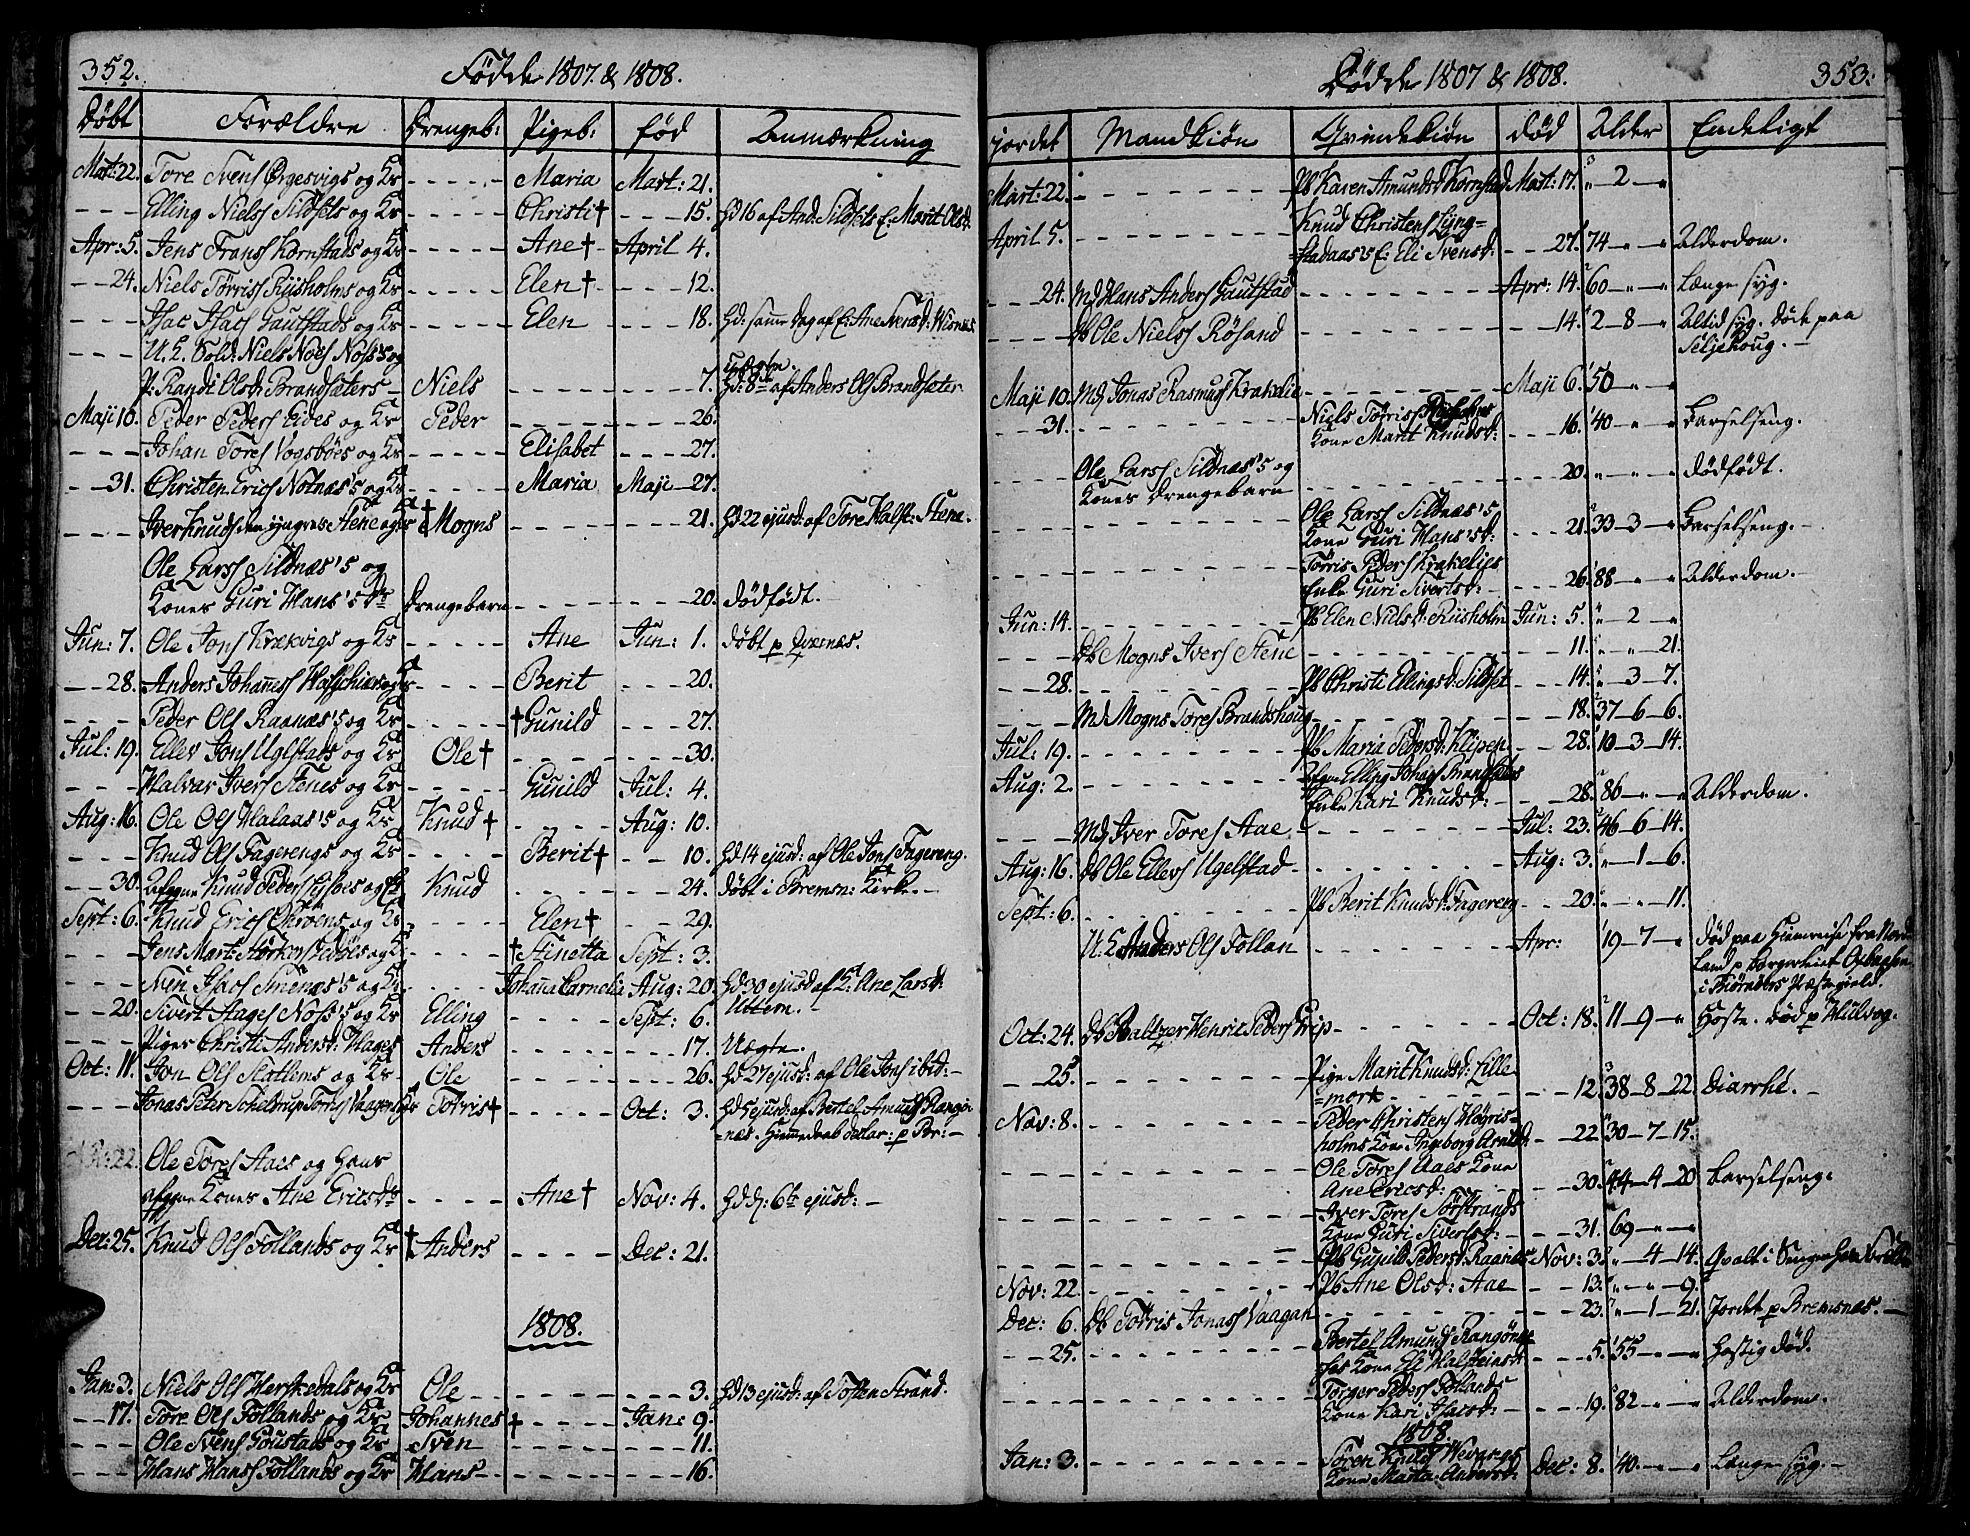 352.
Fødde 1807. & 1808.
Døbt Forældre Drengeb: Pigeb: fød Anmærkning
Mart: 22. Tore Svens Ørgesvigs og K. - - - - - Maria Mart: 21.
- - - Elling Niels Sildsets og K. - - - - - Christi † - - - 15. Hd 16 af Sildsets E: Marit Olsd.
Apr: 5. Jens Frans Kornstads og K. - - - - - Ane † April 4.
- - 24. Niels Törris Riisholms og K. - - - - - Elen † - - - 12.
- - - Isac Isacs Gautstads og K. - - - - - Elen - - - 18. Hd: samme Dag af E: Ane
- - - U. K. Sold: Niels Noes Noss's og
P: Randi Olsd: Brandsæters - Niels - - - - - 7. Uægte. Hd: 8de af Anders Ols Brandsæter
Maji 10. Peder Peders Eides og K. Peder - - - - - 26.
Johan Tores Vogsbøes og K. - - - - - Elisabet - - - 27.
- - 31. Christen Erics Notnæs's og K. - - - - - Maria Maji - 27.
- - - Iver Knuds. den yngres Stene og K. † Mogns - - - 21. Hd 22 ejusd: af Tore Halst: Stene.
Ole Lars Sildnæs's og
- - - Kones Guri Hans's Dr Drengebarn - - - - - 20. dödfödt.
Jun: 7. Ole Jons Krækvigs og K. - - - - - Ane Jun: 1. döbt p Qvernæs.
- - 28. Anders Johannes og K. - - - - - Berit - - - 20.
- - - Peder Ols Raanæs's og K. † Gunild - - - 27.
Jul: 19. Ellev Jons Ugelstads og K. Ole † - - - - - 30.
- - - Halvar Ivers Stenes og K. - - - - - Gunild Jul: 4.
Aug: 16. Ole Ols Halaas's og K. Knud † - - - - Aug: 10.
- - - Knud Ols Fagerengs og K. - - - - Berit † - - 10. Hd 14 ejusd: af Ole Jons Fagereng.
- - 30. Afgne Knud Peders og K. Knud - - - - - 24. döbt i Bremsn: Kirke. -
Sept: 6. Knud Erics og K. - - - - Elen † - - 29.
- - - Jens Marts og K. - - - - † Stinetta Sept: 3.
- - - Isacs Smenæs's og K. - - - - Johanna Cornelia Aug: 20. Hd 30 ejusd af E: Ane Larsd:
- - 20. Sivert Aages Noss's og K. Elling - - - - Sept: 6. Uttern. -
- - - Piges Christi Andersd: Hages Anders - - - - - 17. Uægte.
Oct: 11. Jon Ols Slatlems og K. Ole - - - - - 26. Hd 27 ejusd: af Ole Jons ibid: -
- - - Jonas Peter Schelderup Torris Vaagens K. Törris † - - - - - Oct: 3. Hd 5 ejusd: af Bertel Amunds Rangøe-
=næs. Hiemedaab declar: p Br: -
22. Ole Tores Aaes og hans
afgne Kones Ane Ericsdr - - - - Ane † Nov: 4. Hd: 6te ejusd: -
Dec: 25. Knud Ols Föllands og K. † Anders - - - - Dec: 21.
1808.
Jan: 3. Niels Ols Herskedals og K. Ole - - - - - - - 3. Hd 13 ejusd: af Tosten Strand.
- - 17. Tore Ols Föllands og K. Johannes † - - - - Jan: 9.
- - - Ole Svens Goustads og K. Sven - - - - - 11.
- - - Hans Hans Föllands og K. Hans - - - - - 16.
Dødde 1807 & 1808. 353.
jordet Mandkiön Qvindekiön död Alder Endeligt
Mart: 22. - - - - - Pb Karen Amundsd: Kornstad Mart: 17. " - 2 - "
Knud Christens Lyng=
April 5. - - - - - =stadaas's E: Eli Svensd: - - 27. 74 - " - " Alderdom.
- - 24. Md Hans Anders Gautstad - - - - - Apr: 14. 60 - " - " Længe syg.
- - - db Ole Niels Rösand - - - - - 14. 2 - 8 - " Altid syg. döde paa
Seljehoug. -
Maji 10. Md Jonas Rasmus Krakelie - - - - - Maji 6. 50 - " - "
- - 31. - - - - - Niels Törris Riisholms
Kone Marit Knudsd: - - - 16. 40 - " - " Barselseng.
Ole Lars Sildnæs's og
- - - Kones drengebarn - - - - - 20. " - " - " dödfödt.
Ole Lars Sildnæs's
- - - - - Kone Guri Hans'sd: - - - 21. 33 - 3 - " Barselseng. -
Törris Peders Krakelies
- - - - - Enke Guri Sivertsd: - - - - 26. 88 - " - " Alderdom. -
Jun: 14. - - - - - Pb Elen Nielsd: Riisholm Jun: 5. " - 2 - "
- - - db Mogns Ivers Stene - - - - - 11. " - " - 21.
- - 28. - - - - - Pb Christi Ellingsd: Sildset - - 14. " - 3 - 7.
- - - Md Mogns Tores Brandshoug - - - - - 18. 37 - 6 - 6.
Jul: 19. - - - - - Pb Maria Pedersd: Klipen - - 28. 10 - 3 - 14.
Aug: 2. - - - - - Afgne Elling Johns Brandsæters
Enke Kari Knudsd: - - - 28. 86 - " - " Alderdom.
- - - Md Iver Tores Aae - - - - - Jul: 23. 46 - 6 - 14.
Aug: 16. db Ole Ellevs Ugelstad - - - - - Aug: 3. " - 1 - 6.
Sept: 6. - - - - - Pb Berit Knudsd: Fagereng - - 20. " - " - 11.
U. K. Anders Ols Föllan - - - - - Apr: 19 - 7 - " död paa Hiemreise fra Nord-
land p
i Præstegield.
Oct: 24. db Baltzer Henric Peders - - - - - Oct: 18. 11 - 9 - " Hoste. död p
- - 25. - - - - - Pige Marit Knudsd: Lille
=mork - - - - 12. 38 - 8 - 22. Diarrhé. -
Nov: 8. - - - - - Peder Christens Högris-
holms Kone Ingeborg - - 22. 30 - 7 - 15.
- - - - - Ole Tores Aaes Kone
Ane Ericsd: - - - - 30. 44 - 4 - 20 Barselseng.
- - - - - Iver Tores Sörstrands
Kone Guri Sivertsd: - - - 31. 69 - " - "
- - - - - Pb Gunild Pedersd: Raanæs Nov: 3. " - 4 - 14. Qvalt i Sengen
Nov: 22. - - - - - Pb Ane Olsd: Aae - - 13. " - " - 9.
Dec: 6. db Törris Jonas's Vaagan - - - - - 23. " - 1 - 21. Jordet p Bremsnæs. -
- - 25. - - - - - Bertel Amunds Rangönæs
Kone Eli Halsteinsd: - - - 5. 55 - " - " Hastig död.
- - - - - Torger Peders Föllands
Kone Kari Isacsd: - - - - 19. 82 - " - " Alderdom.
1808.
Jan: 3. - - - - - Sören Knuds Wevangs
Kone Marta Andersd: Dec: 8. 40. - " - " Længe syg. -